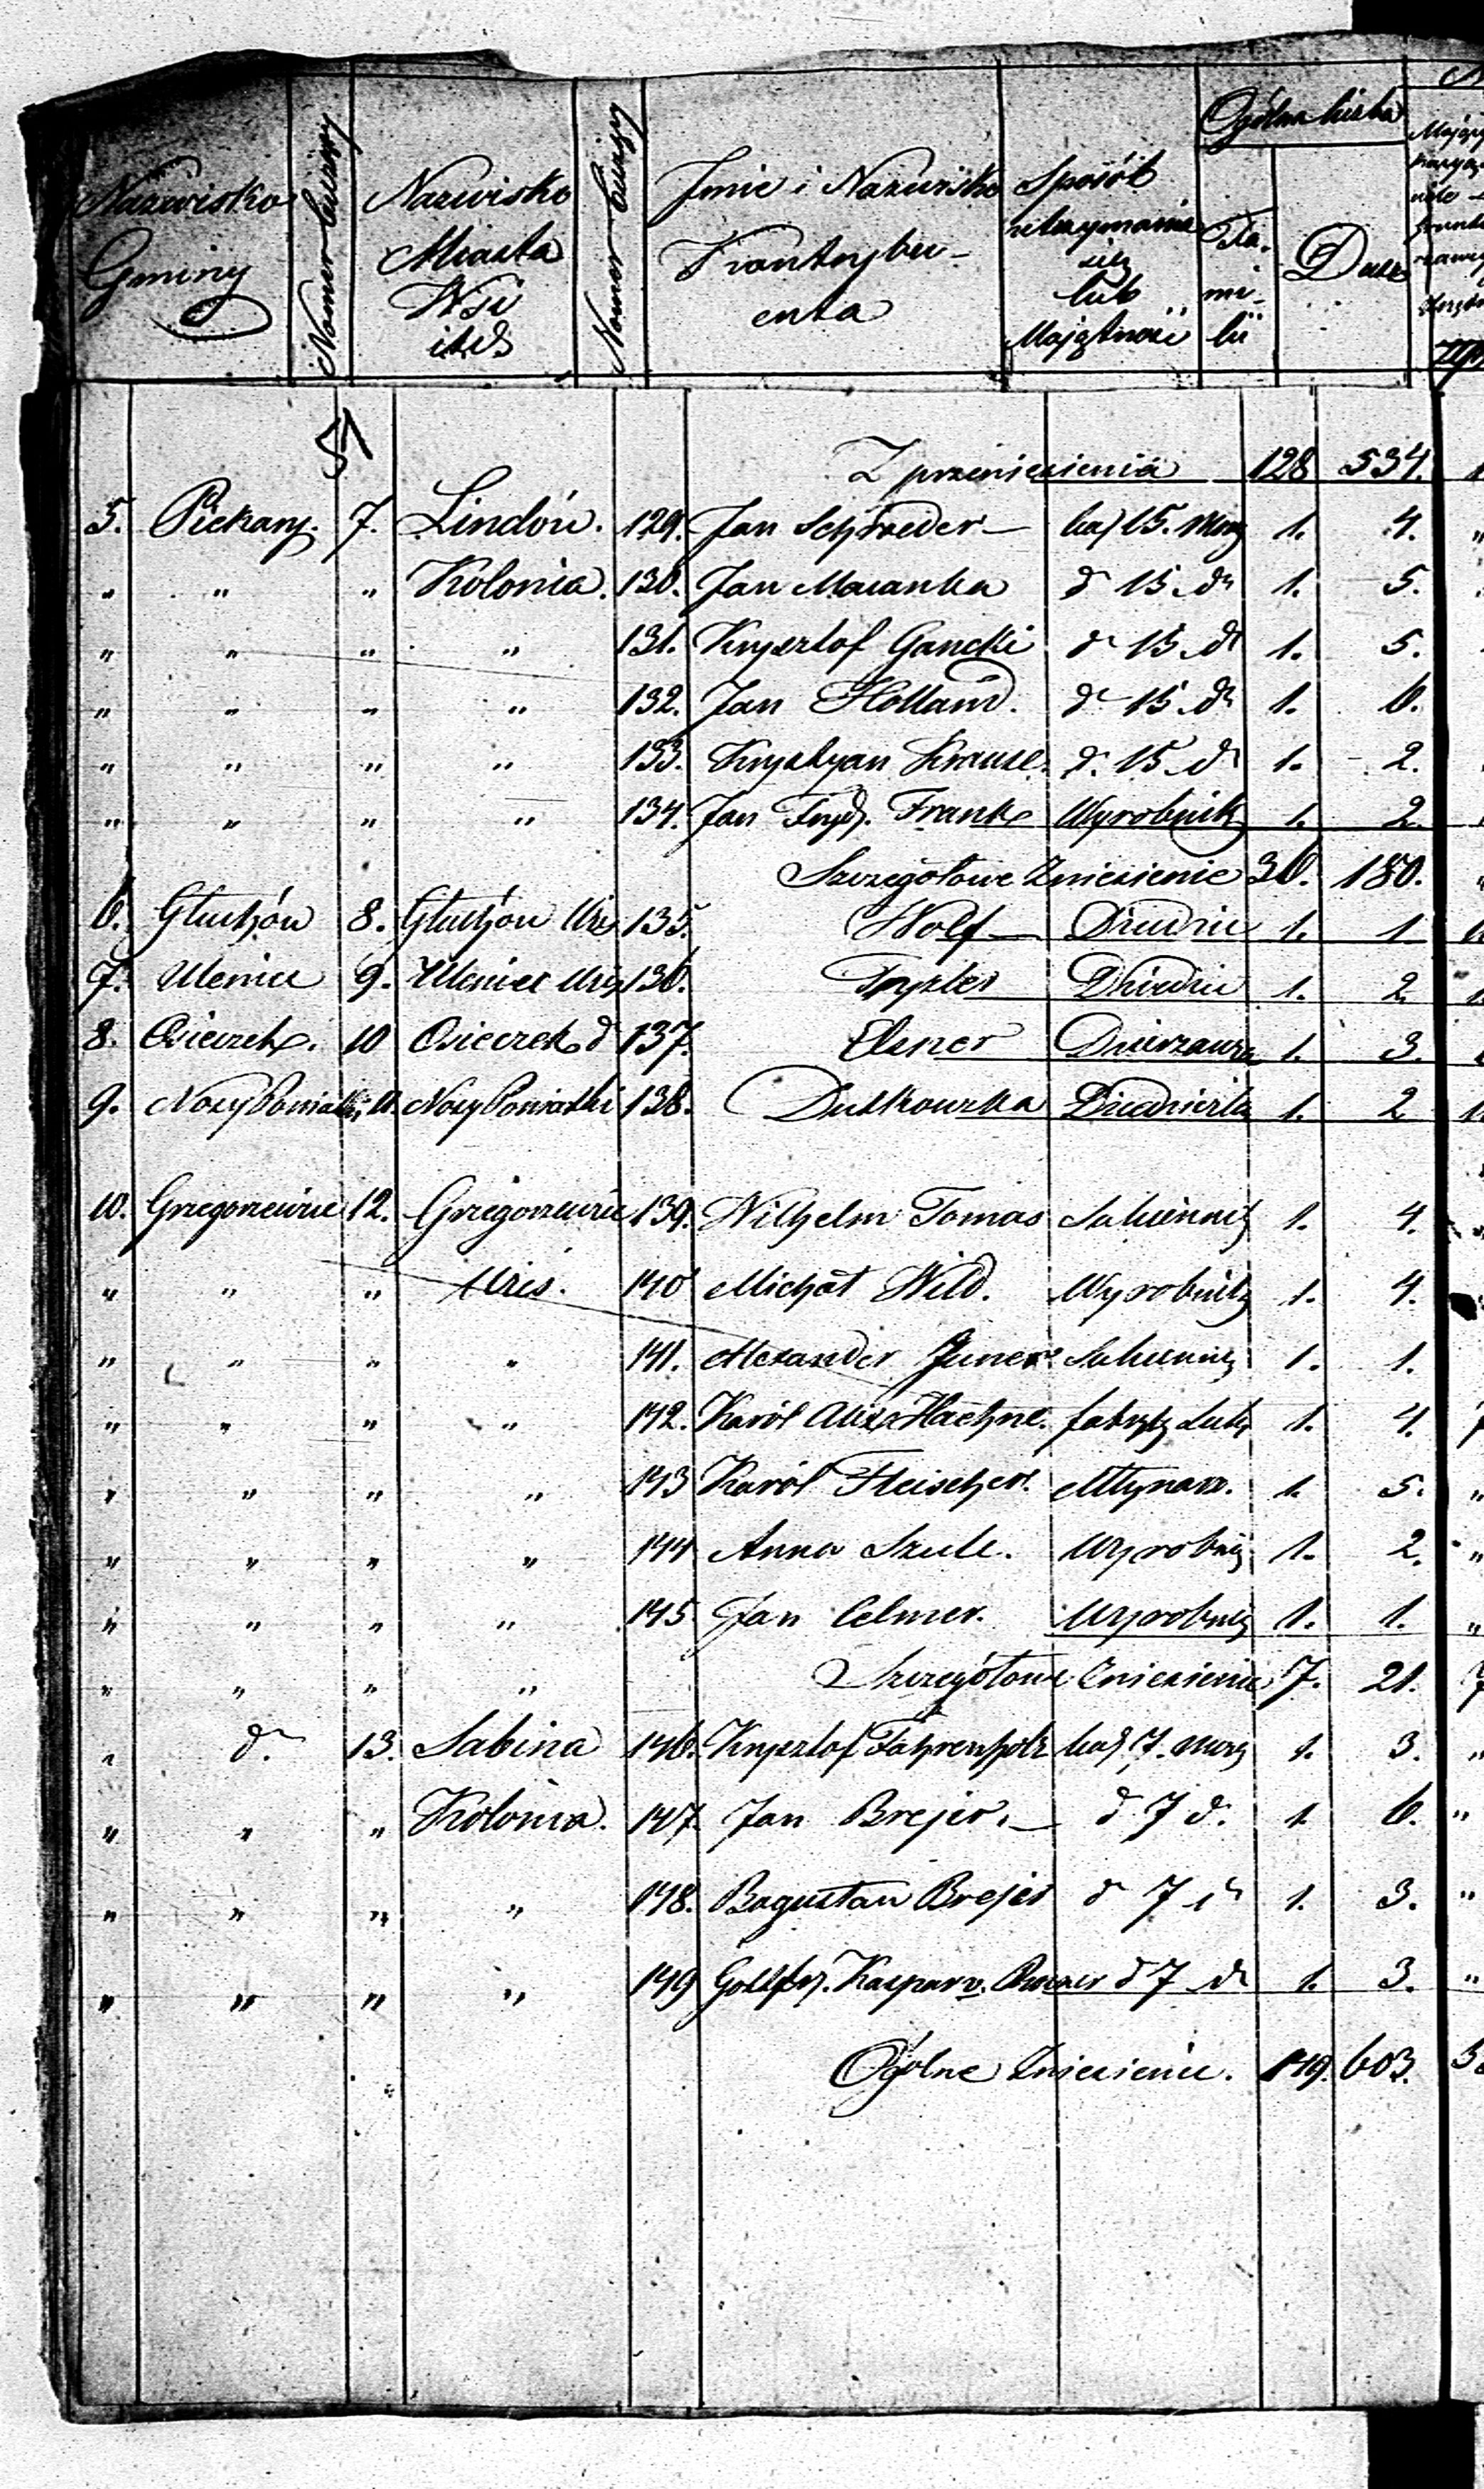 Nazwisko Gminy
Numer bieżący
Nazwisko Miasta Wsi itd
Numer bieżący
Jmie i Nazwisko Kontrybuenta
Sposób utrzymania się lub Majątność
Ogólna liczba
Fa- mi- lii
Dusz
51
Z przeniesienia 128 534.
5. Piekary. 7. Lindów. 129. Jan Schroeder 15. Morg 1. 4.
" " " Kolonia. 130. Jan d 15. do 1. 5.
" " " " 131. Krysztof Gancki do 15. do 1. 5.
" " " " 132. Jan Holland. do 15. do 1. 6.
" " " " 133. Krystyan Krause. d. 15. do 1. 2.
" " " " 134. Jan Fryd. Frank Wyrobnik 1. 2.
Szczegółowe Zniesienie 36. 180.
6. Głuchów 8. Głuchów Wieś 135. Wolf Dziedzic 1. 1
7. 9. Wieś 136. Dziedzic 1. 2.
8. Osieczek. 10 Osieczek d 137. Elsner Dzierzawca 1. 3.
9. Nosy Poniatki, 11. Nosy Poniatki 138. Dutkowska Dziedziczka 1. 2
10. Grzegorzewice 12. Grzegorzewice 139. Wilhelm Tomas Sukiennik 1. 4.
" " " Wieś. 140 Michał Wild. Wyrobnik 1. 4.
" " " " 141. Alexander Juner Sukiennik 1. 1.
" " " " 142. Karól Haehne. fabryk 1. 4.
" " " " 143 Karól Fleischer. Młynarz. 1. 5.
" " " " 144 Anna Szulc. Wyrobnik 1. 2.
" " " " 145 Jan Celmer. Wyrobnik 1. 1.
" " " " Szczegółowe Zniesienie 7. 21.
" d. 13. Sabina 146. Krysztof Fahrenholz 7. Morg 1. 3.
" " " Kolonia. 147. Jan Brejer. d 7 d. 1. 6.
" " " " 148. Bogusław Brejer d 7 d 1. 3.
" " " " 149 Gottfr. Kaspar v. d 7 do 1. 3.
Ogólne Zniesienie. 149. 603.